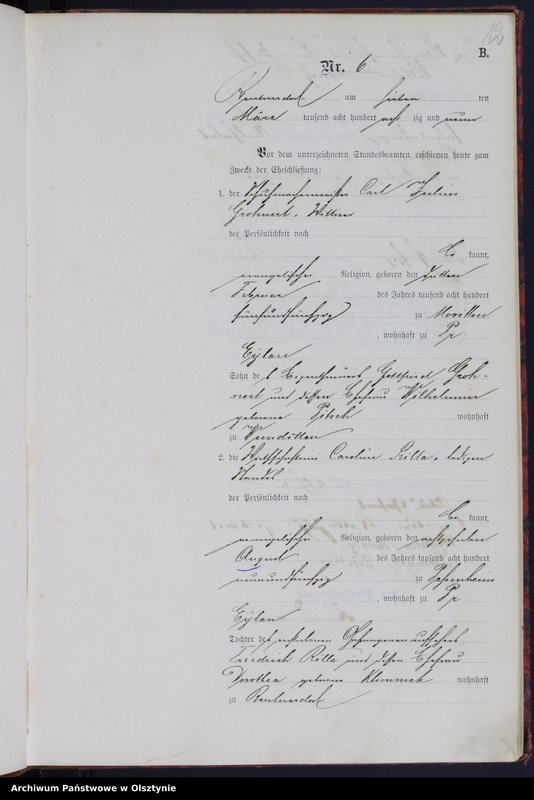 12
B.
Nr. 6
am sieben ten
März tausend acht hundert acht zig und neun
Vor dem unterzeichneten Standesbeamten erschienen heute zum
Zwecke der Eheschließung:
1. der Schuhmachermeister Carl Julius
Grohnert, Wittwer
der Persönlichkeit nach
be kannt,
evangelischer Religion, geboren den dritten
Februar des Jahres tausend acht hundert
fünfundfünfzig zu Moritten
, wohnhaft zu Pr.
Eylau
Sohn des Eigenthümers Gottfried Groh-
nert und dessen Ehefrau Wilhelmine
geborene Pitsch wohnhaft
zu Wenditten
2. die Wirthschafterin Caroline Rilla, ledigen
Standes
der Persönlichkeit nach
be kannt,
evangelischer Religion, geboren den achtzehnten
August des Jahres tausend acht hundert
neunundfünfzig zu
, wohnhaft zu Pr.
Eylau
Tochter des verstorbenen Gefangenenaufsehers
Friedrich Rilla und dessen Ehefrau
Dorothea geborene Klimmek wohnhaft
zu
Archiwum Państwowe w Olsztynie